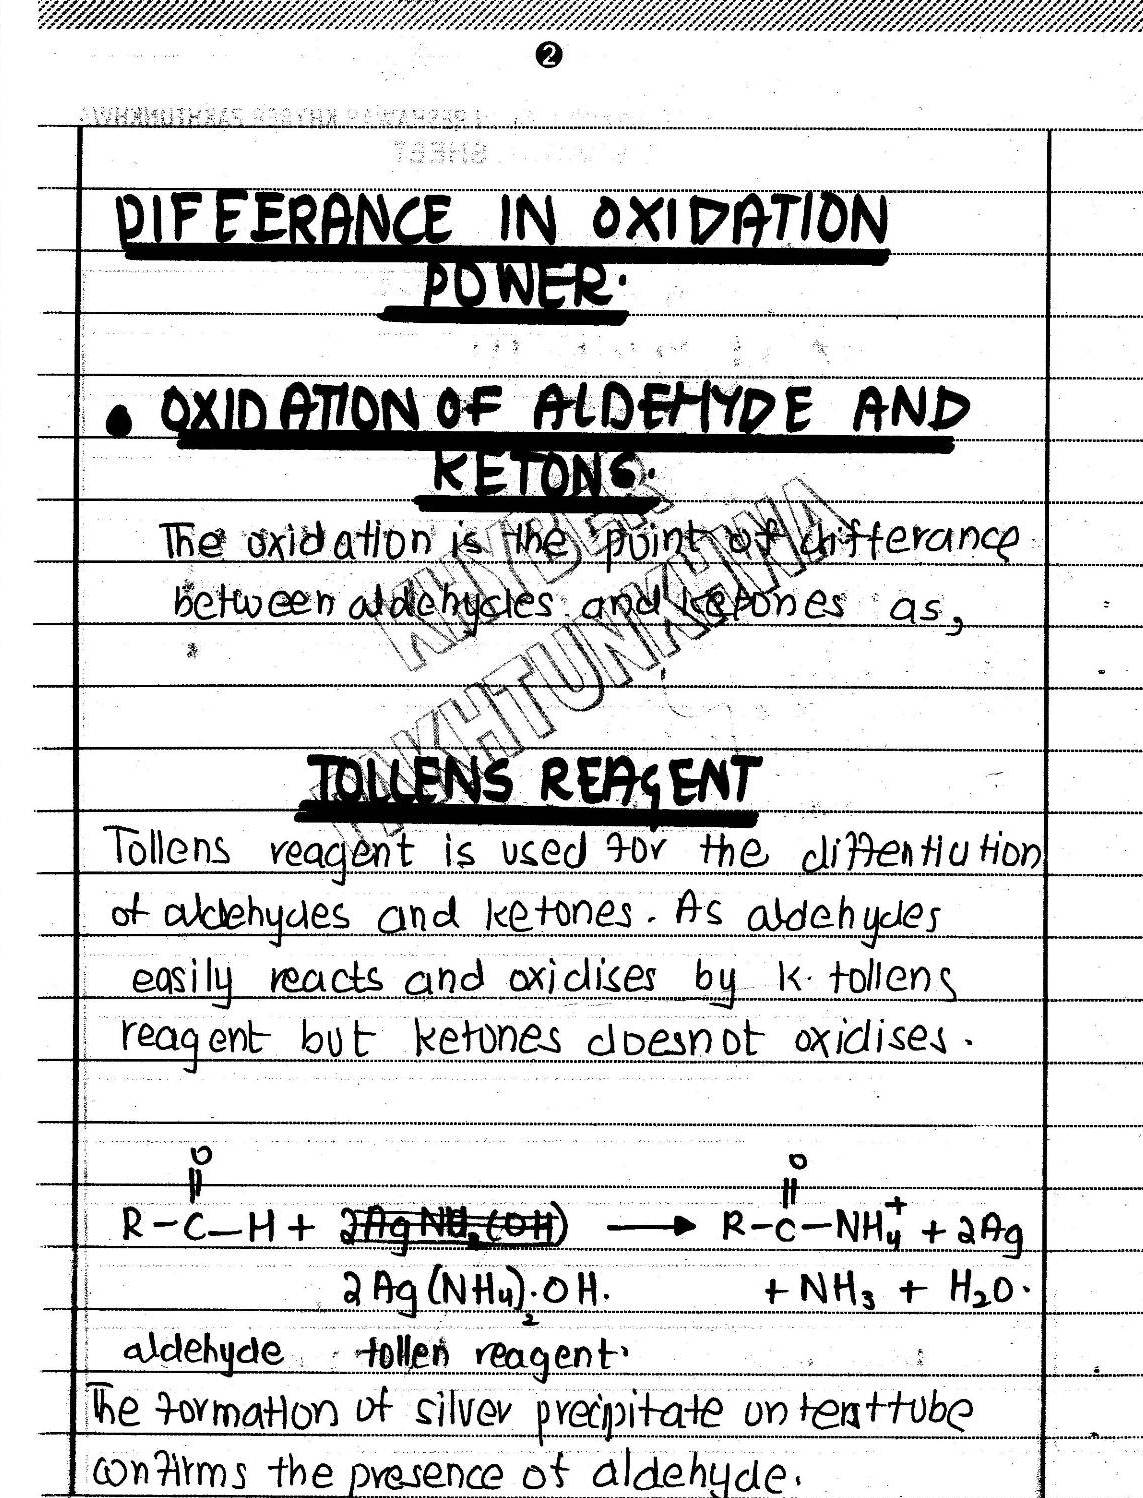 2
DIFFERANCE IN OXIDATION
POWER.
• OXIDATION OF ALDEHYDE AND
KETONS.
The oxidation is the point of differance
between aldehydes and ketones as,
KHYBER
PAKHTUNKHWA
TOLLENS REAGENT
Tollens reagent is used for the diffentiation
of aldehydes and ketones. As aldehydes
easily reacts and oxidises by k. tollens
reagent but ketones doesnot oxidises.
O
||
R-C-H + 2Ag(NH₄)₂.OH. → R-C-NH₄⁺ + 2Ag
+ NH₃ + H₂O.
aldehyde tollen reagent.
The formation of silver precipitate on testtube
confirms the presence of aldehyde.